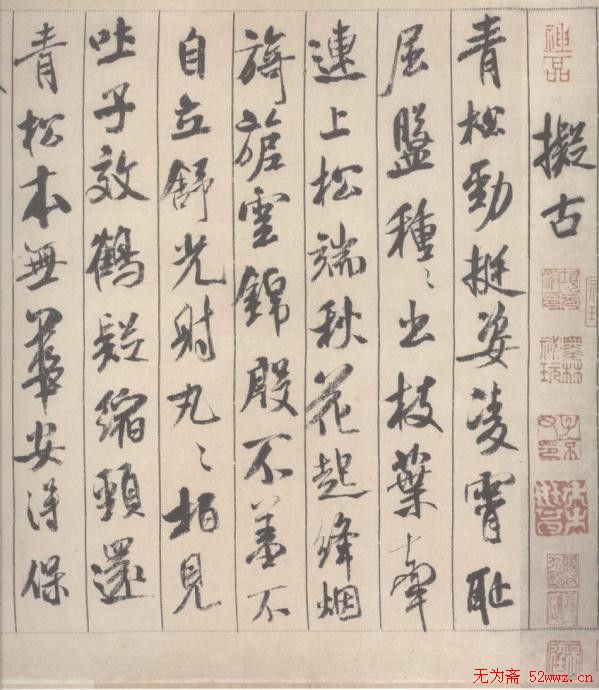 神品
擬古
青松勁挺姿凌霄恥
屈盤種〻出枝葉牽
連上松端秋花起絳烟
旖旎雲錦殷不羞不
自立舒光射丸〻柏見
吐子效鶴疑縮頸還
青松本無華安得保
无为斋 52wwz.cn